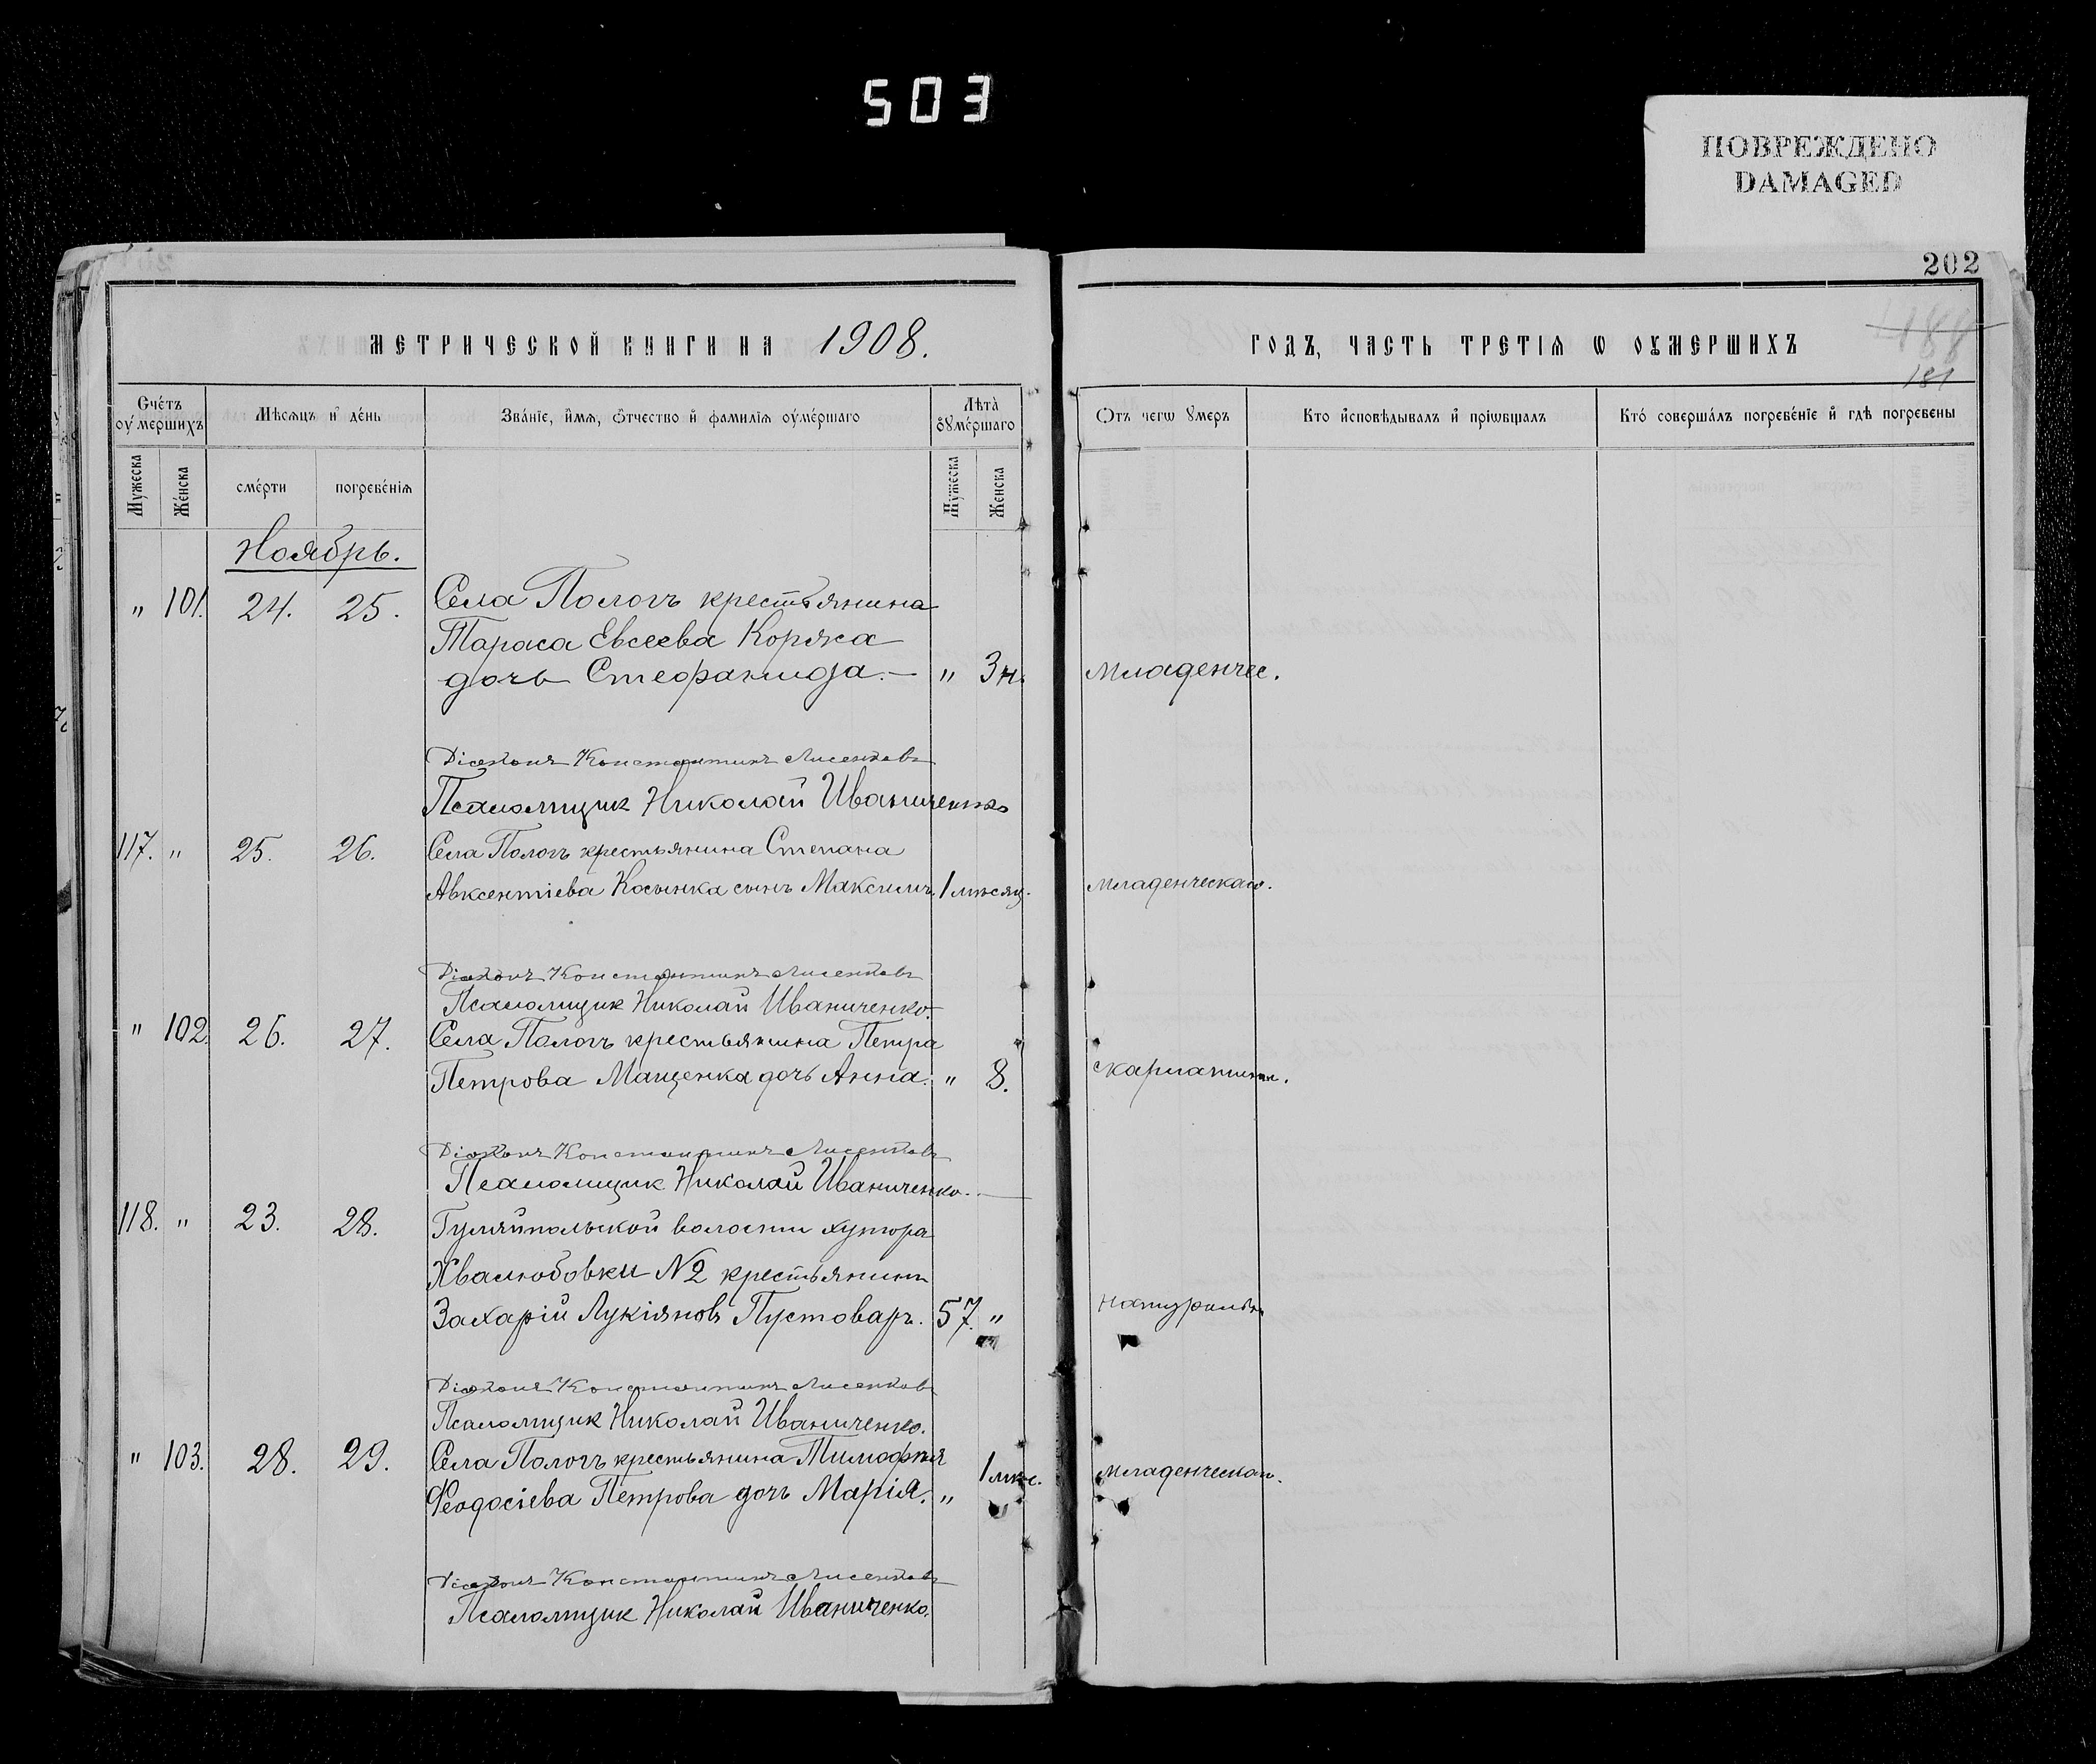 503
ПОВРЕЖДЕНО
DAMAGED
202
МЕТРИЧЕСКОЙ КНИГИ НА 1908.
ГОДЪ, ЧАСТЬ ТРЕТІѦ Ѡ ОУМЕРШИХЪ
188
181
Сче́тъ оу́мершихъ
Мѣсѧцъ и҆ де́нь
Зва́нїе, и҆́мѧ, ѻ҆́тчество и҆ фамилїѧ оу́ме́ршаго
Лѣта̀ оу҆ме́ршаго
Ѿтъ чегѡ оу҆меръ
Кто и҆сповѣдывалъ и҆ прїѡбщалъ
Кто́ соверша́лъ погребе́нїе и҆ гдѣ погребены
Мужеска
Же́нска
сме́рти
погребе́нїѧ
Мужеска
Женска
Ноябрь.
" 101. 24. 25. Села Пологъ крестьянина
Тараса Евсеева Коржа
дочь Стефанида. " 3 н. младенчес.
Діаконъ Константинъ Лисенковъ
Псаломщик Николай Иваниченко
117. " 25. 26. Села Пологъ крестьянина Степана
Авксентіева Косынка сынъ Максимъ. 1 мѣсяц. младенческаго.
Діаконъ Константинъ Лисенковъ
Псаломщик Николай Иваниченко.
" 102. 26. 27. Села Пологъ крестьянина Петра
Петрова Мащенка дочь Анна. " 8. скарлатины.
Діаконъ Константинъ Лисенковъ
Псаломщик Николай Иваниченко.
118. " 23. 28. Гуляйпольской волости хутора
Хвалюбовки №2 крестьянинъ
Захарій Лукіяновъ Пустоваръ. 57. " натуральн.
Діаконъ Константинъ Лисенковъ
Псаломщик Николай Иваниченко.
" 103. 28. 29. Села Пологъ крестьянина Тимофѣя
Феодосіева Петрова дочь Марія. " 1 мѣс. младенческаго.
Діаконъ Константинъ Лисенковъ
Псаломщик Николай Иваниченко.